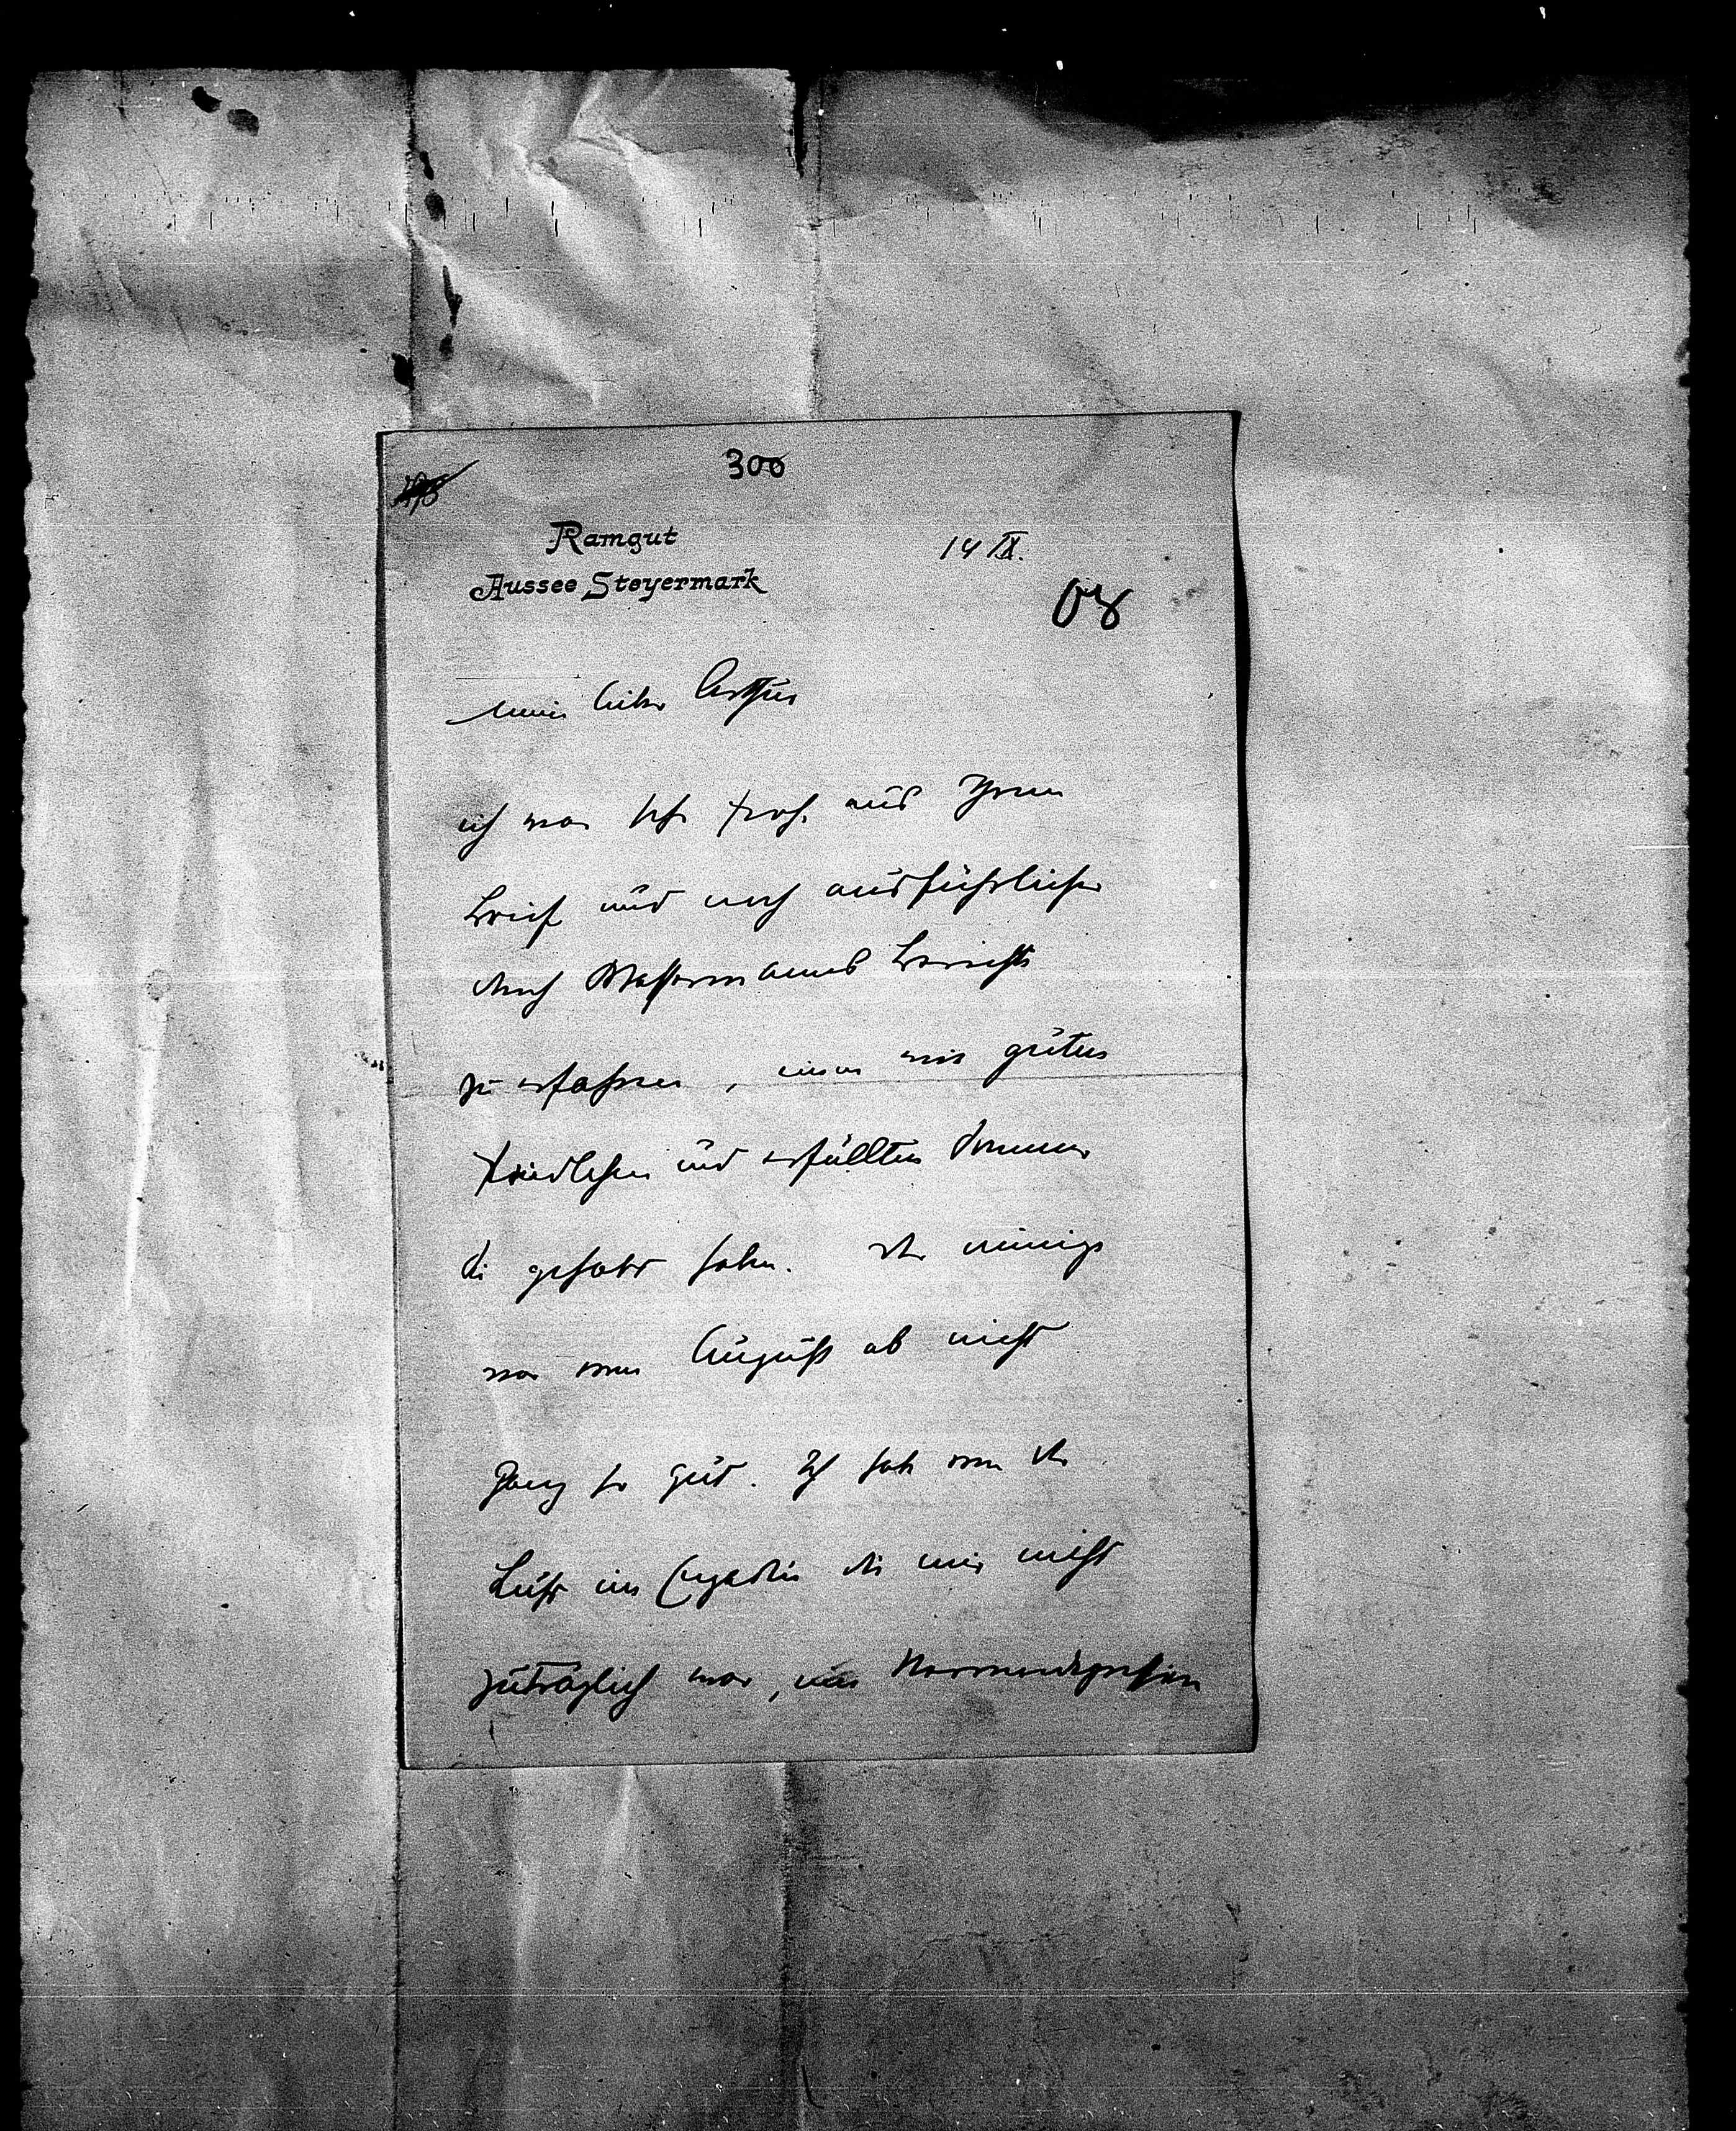 300
Ramgut
Aussee Steyermark
14 IX.
08
mein lieber Arthur
ich war sehr froh aus Ihrem
Brief und noch ausführlicher
durch Wassermanns Bericht
zu erfahren, einen wie guten
friedlichen und erfüllten Sommer
Sie gehabt haben. Der meinige
war vom August ab nicht
ganz so gut. Ich hab von der
Luft im Engadin die mir nicht
zuträglich war, eine Nervendepression